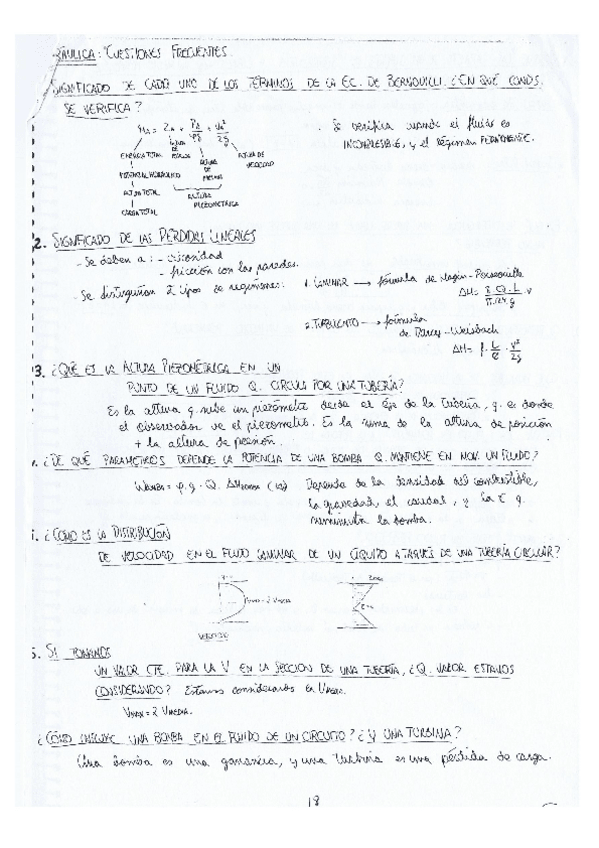 RÁULICA: CUESTIONES FRECUENTES
SIGNIFICADO DE CADA UNO DE LOS TÉRMINOS DE LA EC. DE BERNOUILLI. ¿EN QUÉ CONDS.
SE VERIFICA?
= ZA + PA/ρg + VA²/2g
· Se verifica cuando el fluido es
INCOMPRESIBLE, y el régimen PERMANENTE.
ENERGÍA TOTAL
ALTURA DE
ALTURA DE
VELOCIDAD
POTENCIAL HIDRÁULICO
ALTURA TOTAL
CARGA TOTAL
ALTURA
PIEZOMÉTRICA
2. SIGNIFICADO DE LAS PÉRDIDAS LINEALES
- Se deben a: - viscosidad
- fricción con las paredes.
- Se distinguían 2 tipos de regímenes:
1. LAMINAR → fórmula de
2. TURBULENTO → fórmula
de Darcy-Weisbach
V²/2g
3. ¿QUÉ ES LA ALTURA PIEZOMÉTRICA EN UN
PUNTO DE UN FLUIDO Q. CIRCULA POR UNA TUBERÍA?
Es la altura q. sube un piezómetro desde el eje de la tubería, q. es donde
el observador ve el piezómetro. Es la suma de la altura de posición
+ la altura de presión.
¿DE QUÉ PARÁMETROS DEPENDE LA POTENCIA DE UNA BOMBA Q. MANTIENE EN MOV. UN FLUIDO?
= ρ·g·Q· (W) Depende de la densidad del combustible,
la gravedad, el caudal, y la E q.
suministra la bomba.
¿CÓMO ES LA DISTRIBUCIÓN
DE VELOCIDAD EN EL FLUJO LAMINAR DE UN CIRCUITO A TRAVÉS DE UNA TUBERÍA CIRCULAR?
VMAX = 2 VMEDIA
VELOCIDAD
SI TOMAMOS
UN VALOR CTE. PARA LA V EN LA SECCIÓN DE UNA TUBERÍA, ¿Q. VALOR ESTAMOS
CONSIDERANDO? Estamos considerando la VMEDIA.
VMAX = 2 VMEDIA.
¿CÓMO INFLUYE UNA BOMBA EN EL FLUIDO DE UN CIRCUITO? ¿Y UNA TURBINA?
Una bomba es una ganancia, y una turbina es una pérdida de carga.
18